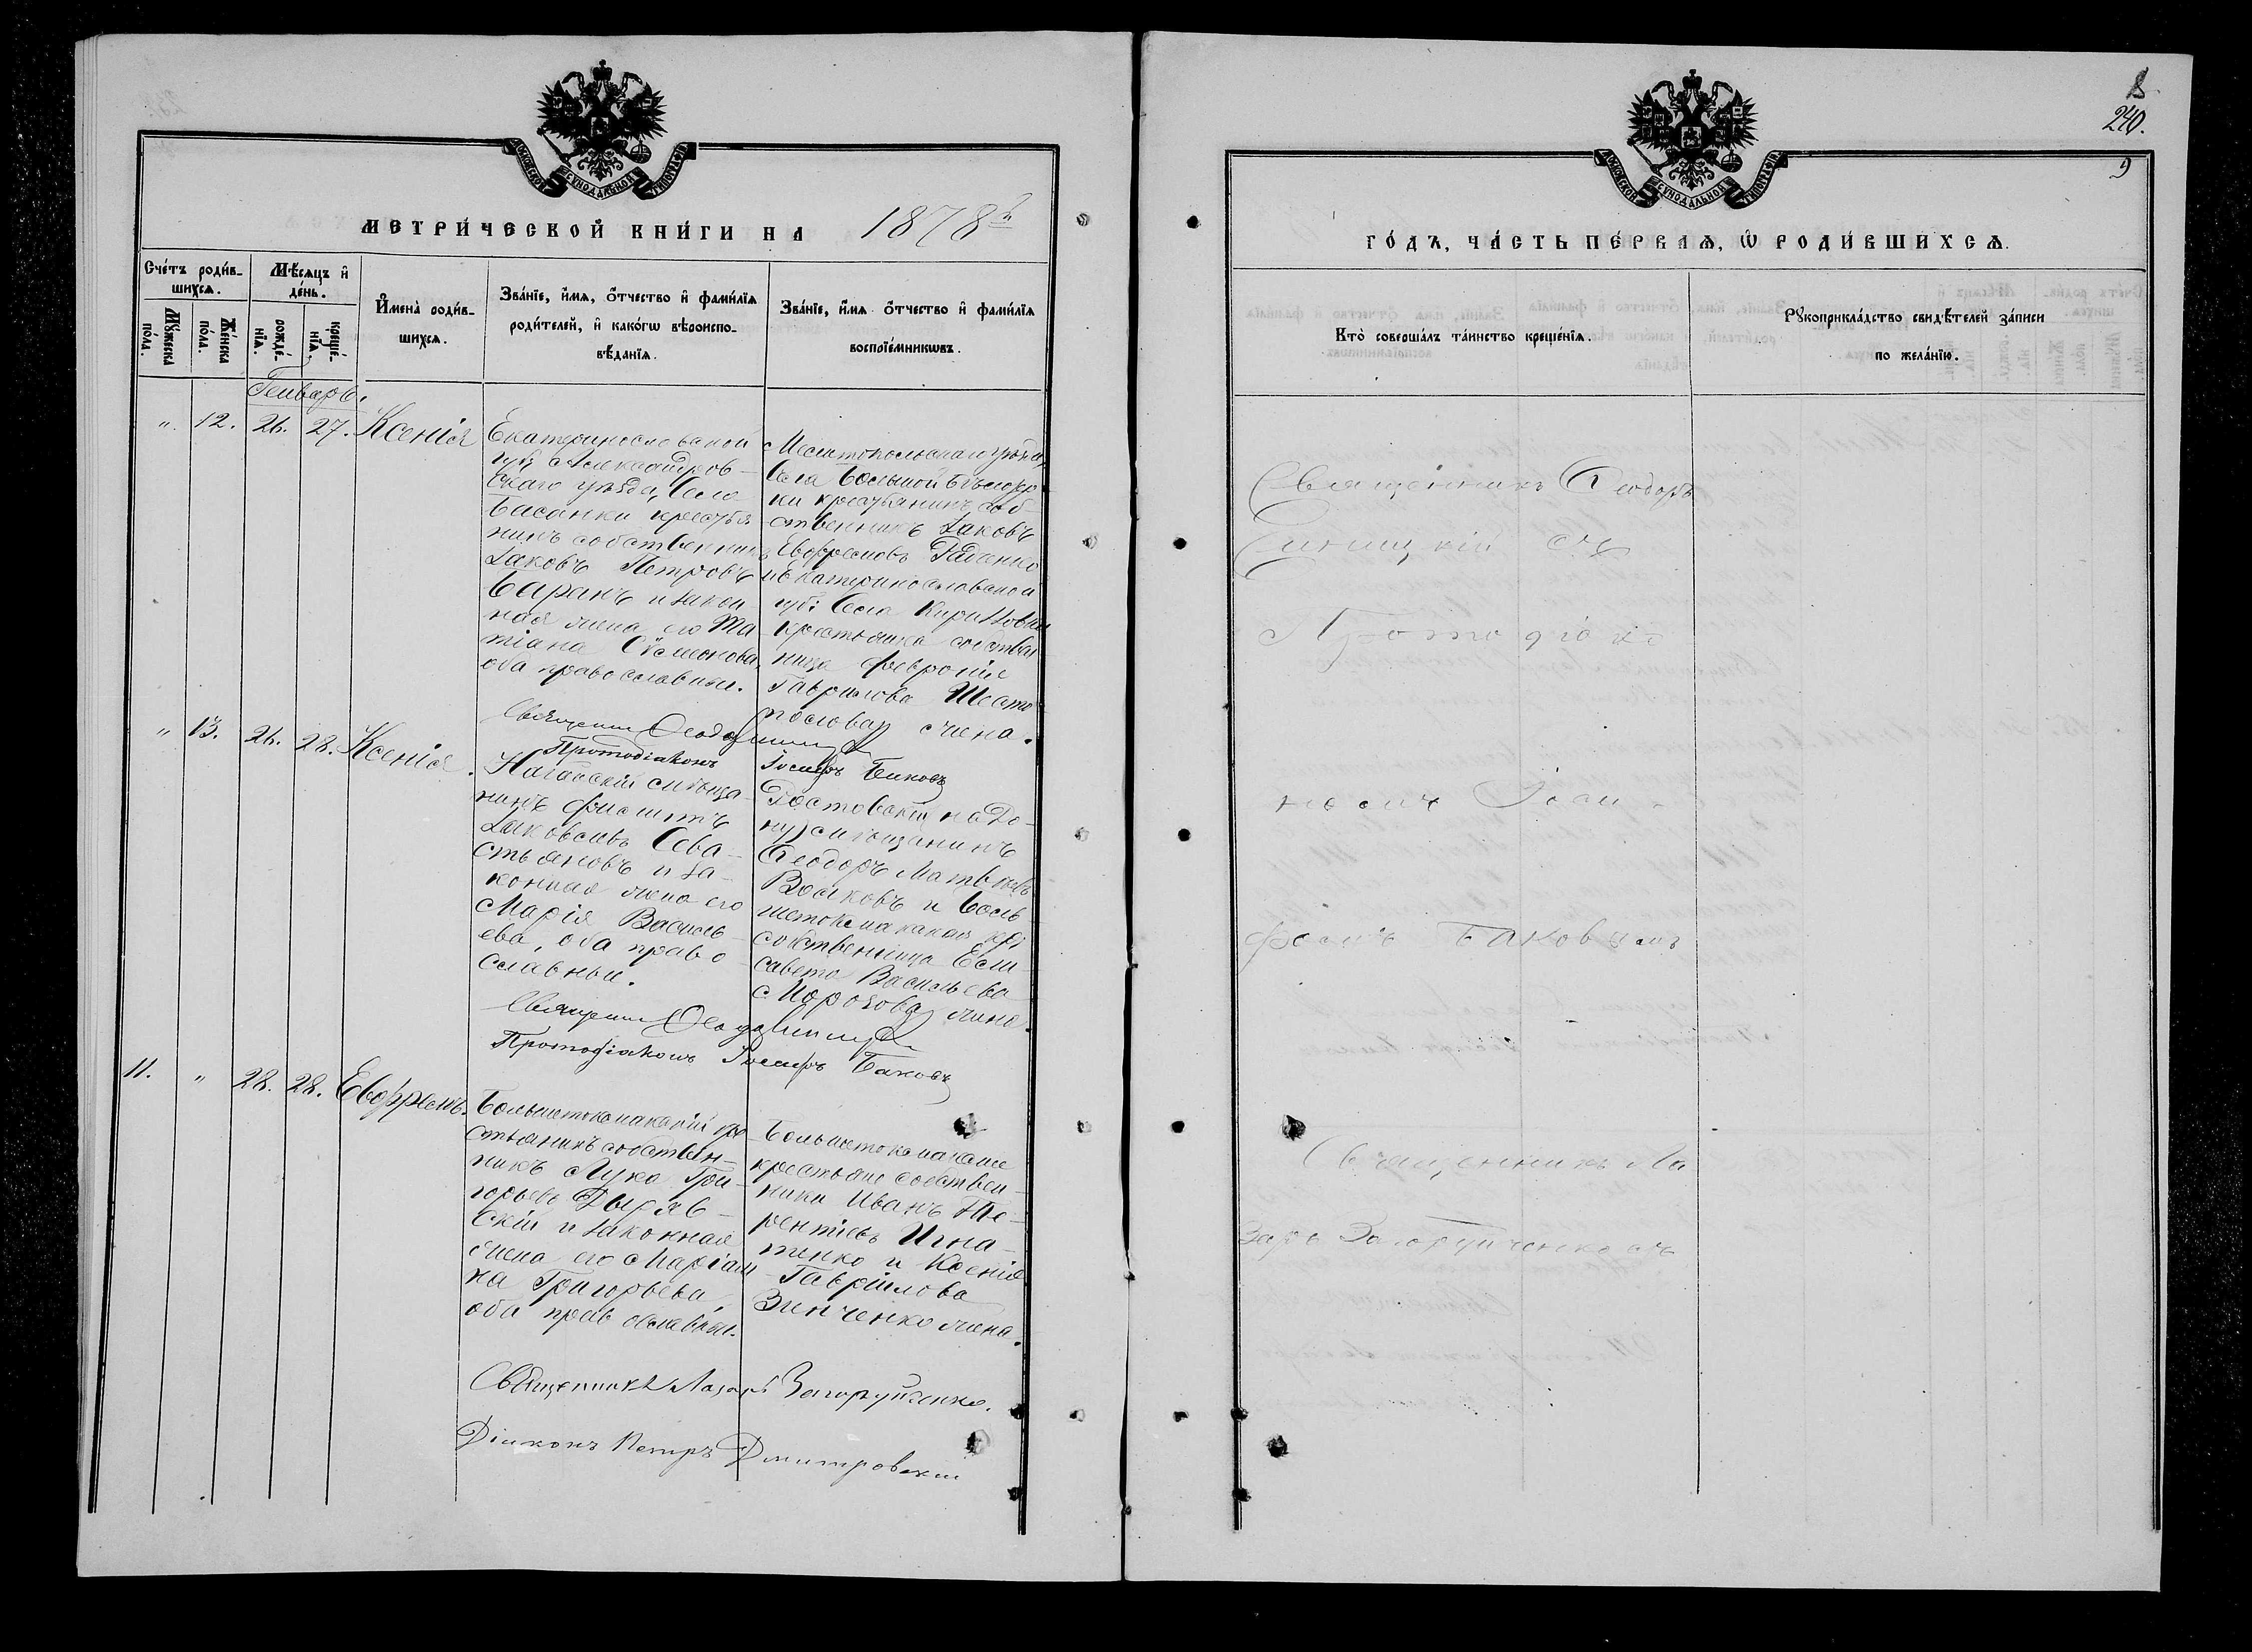 МОСКОВСКОЙ СѴНОДАЛЬНОЙ ТИПОГРАФІИ
МЕТРИ́ЧЕСКОЙ КНИ́ГИ НА 1878й
Сче́тъ роди́в-
шихсѧ.
Мѣ́сѧцъ и҆
де́нь.
И҆мена̀ роди́в-
шихсѧ.
Зва́нїе, и҆́мѧ, ѻ҆́тчество и҆ фами́лїѧ
роди́телей, и҆ како́гѡ вѣроиспо-
вѣ́данїѧ.
Зва́нїе, и҆́мѧ ѻ҆́тчество и҆ фами́лїѧ
воспрїе́мникѡвъ.
Мꙋ́жеска
по́ла.
Же́нска
по́ла.
рожде́-
нїѧ.
креще́-
нїѧ.
Генварь.
" 12. 26. 27. Ксенія
Екатеринославской
губ. Александров-
скаго уѣзда, Села
Басанки крестья
нинъ собственникъ
Іаковъ Петровъ
Баранъ и закон
ная жена его Та
тіана Сѵмеонова,
оба православные.
Мелитопольскаго уѣзда,
Села Большой Бѣлозер
ки крестьянинъ соб
ственникъ Іаковъ
Евфремовъ
и Екатеринославской
губ: Села Кириловки
крестьянка собствен
ница Февронія
Гаврилова
жена.
Священникъ Ѳеодоръ Синицкій
Протодіаконъ Іосифъ Баковъ
" 13. 26. 28. Ксенія.
Ногайскій мѣща-
нинъ Филиппъ
Іаковлевъ Сева-
стьяновъ и за-
конная жена его
Марія Василь-
ева, оба право
славные.
Ростовскій на До-
ну мѣщанинъ
Ѳеодоръ Матвѣевъ
Волковъ и Боль
шетокмакская кр:
собственница Ели
савета Васильева
Морозова жена.
Священникъ Ѳеодоръ Синицкій
Протодіаконъ Іосифъ Баковъ
11. " 28. 28. Евфремъ.
Большетокмакскій кре
стьянинъ собствен-
никъ Лука Гри-
горьевъ
и законная
жена его Маріам
на Григорьева,
оба православные.
Большетокмакскіе
крестьяне собствен-
ники Иванъ Те-
рентіевъ Игна-
тенко и Ксенія
Гаврилова
Зинченко жена.
Священникъ Лазарь Загоруйченко.
Діаконъ Петръ Дмитровскій
8
240.
9
МОСКОВСКОЙ СѴНОДАЛЬНОЙ ТИПОГРАФІИ
ГО́ДЪ, ЧА́СТЬ ПЕ́РВАѦ, Ѡ҆ РОДИ́ВШИХСѦ.
Кто̀ соверша́лъ та́инство креще́нїѧ.
Рꙋкоприкла́дство свидѣ́телей за́писи
по жела́нїю.
Священникъ Ѳеодоръ
Синицкій съ
Протодіако
номъ Іоси
фомъ Баковымъ
Священникъ Ла
зарь Загоруйченко съ